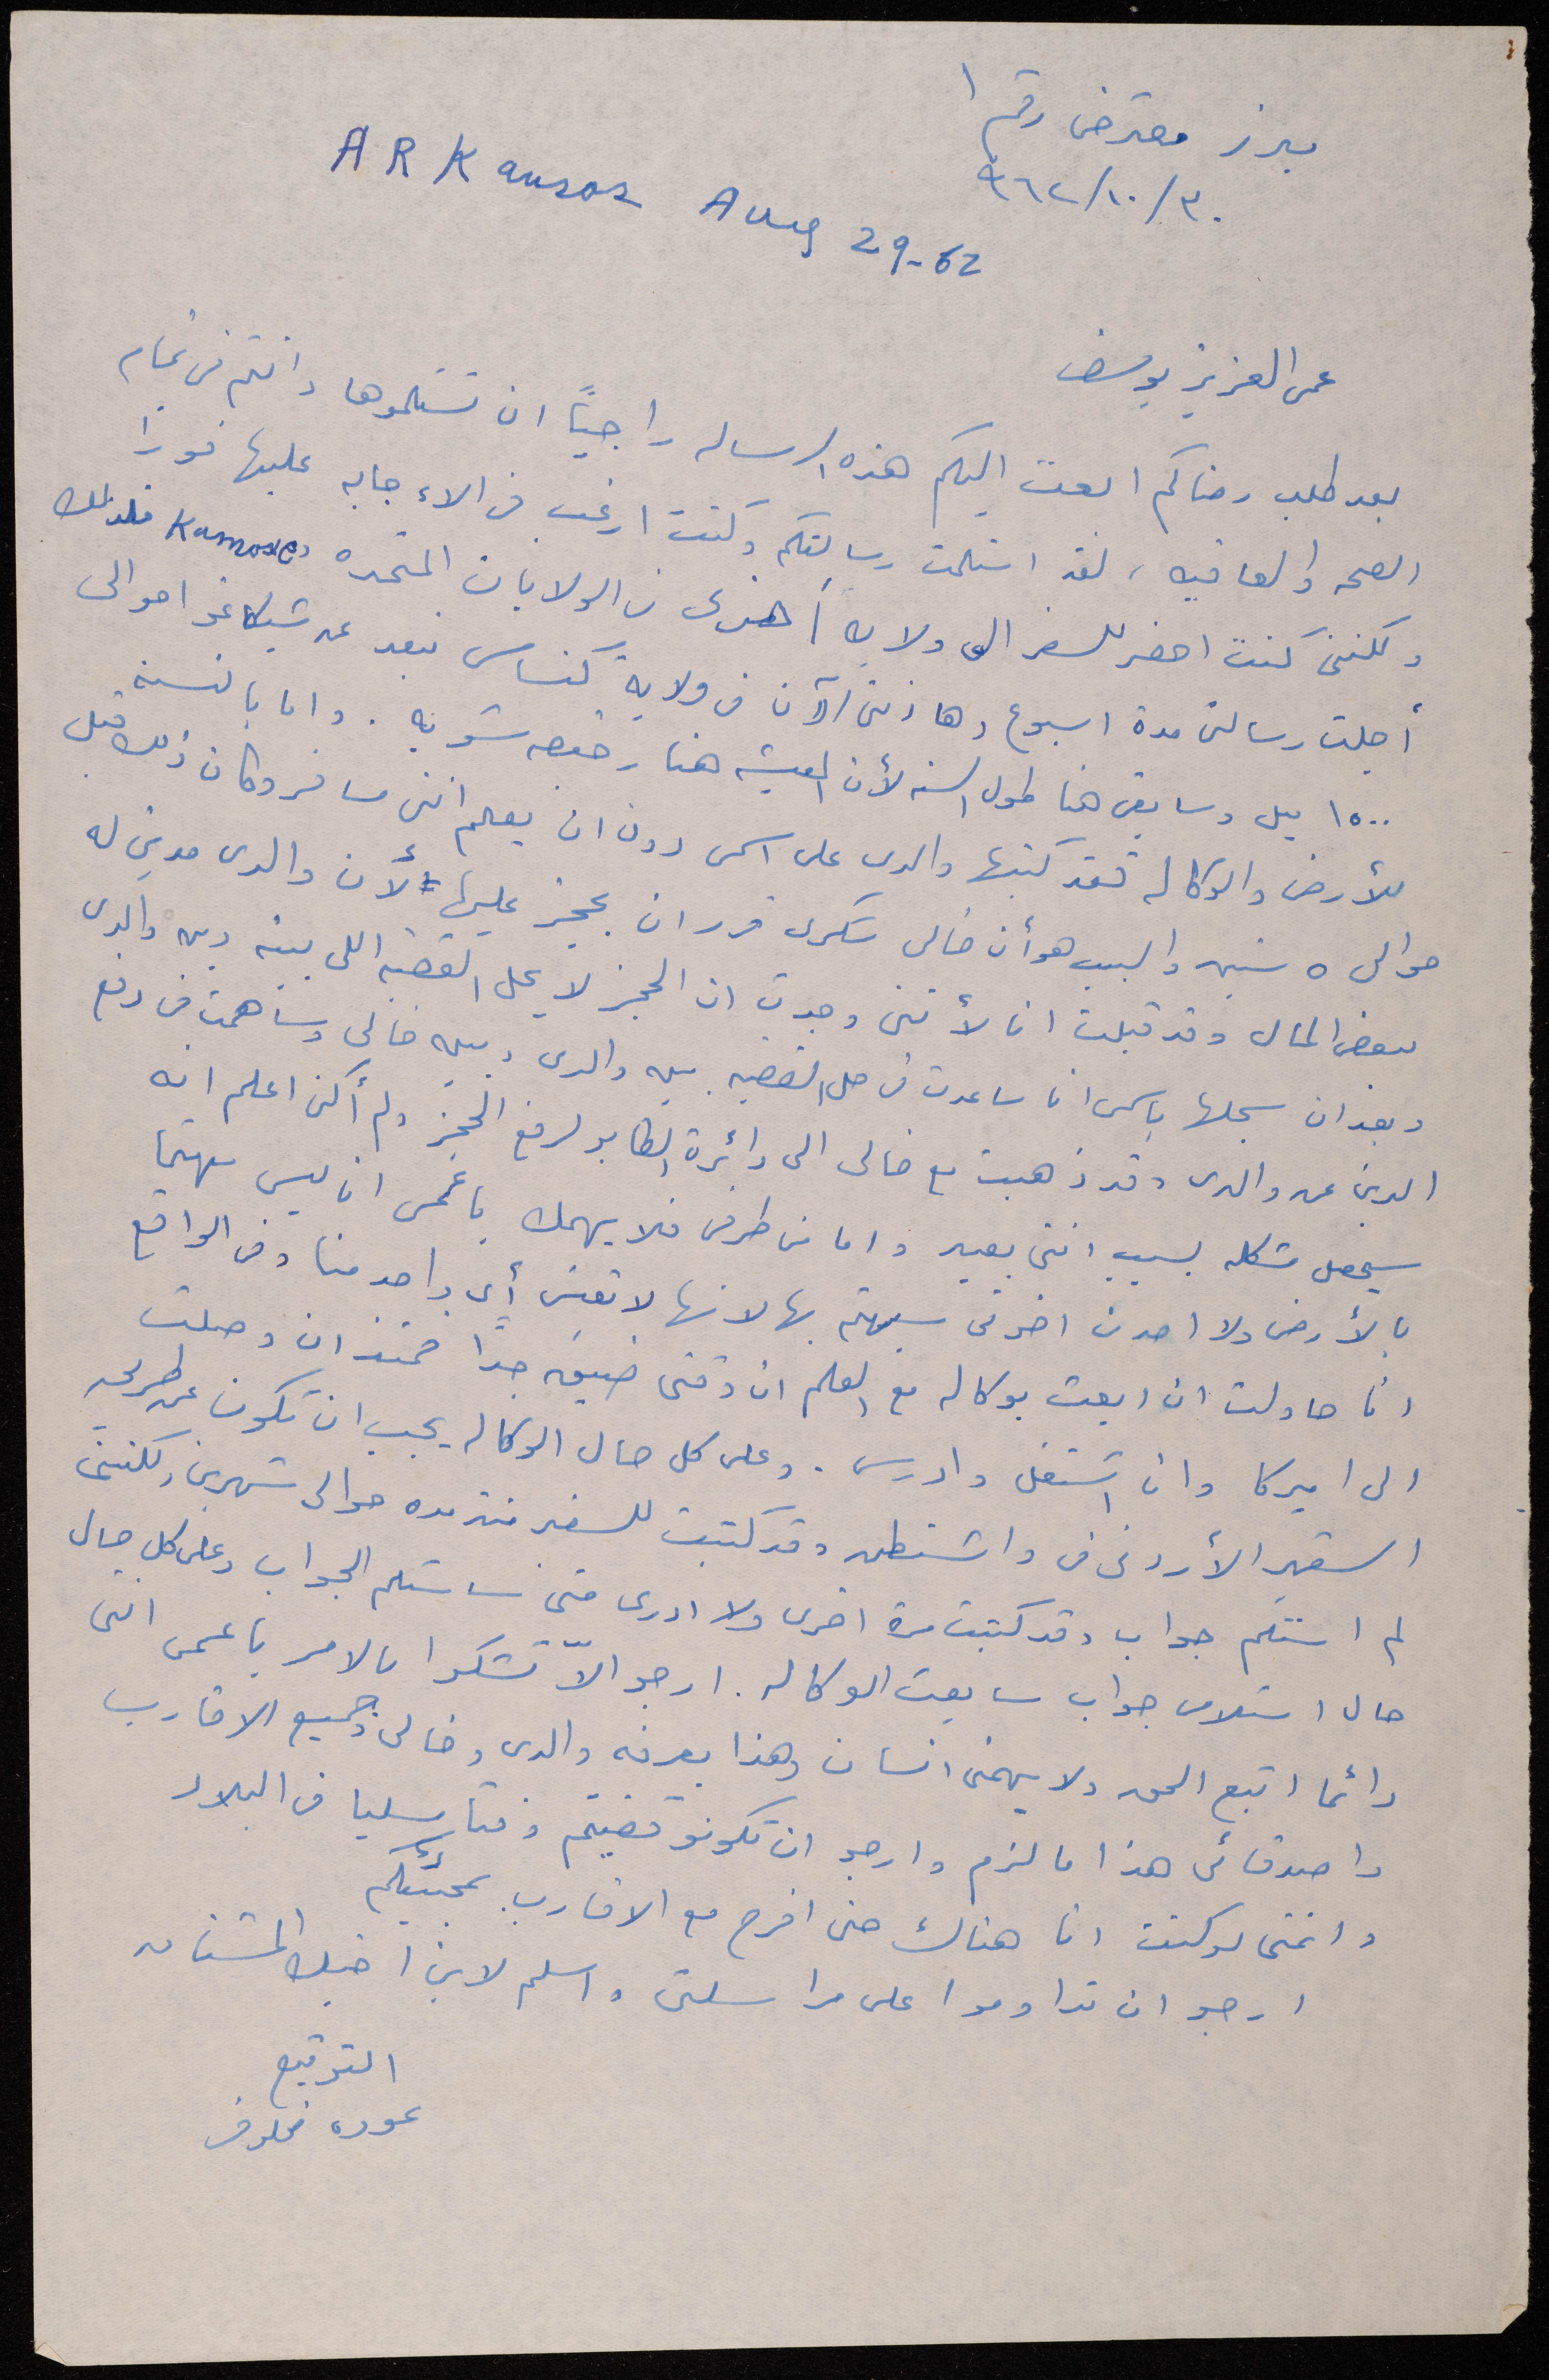 مبرز معترض رقم ١
٩٦٢/١٠/٣٠
ARKansas Aug 29-62
عمي العزيز يوسف
بعد طلب رضاكم ابعث اليكم هذه الرساله راجيًا ان تستلموها وانتم في تمام
الصحه والعافيه، لقد استلمت رسالتكم وكنت ارغب في الاءجابه عليها فورًا
ولكنني كنت احضر للسفر الى ولايه أخرى في الولايات المتحده فلذلك
أجلت رسالتي مدة اسبوع وها انني الآن في ولاية كنساس تبعد عن شيكاغو حوالي
١٥٠٠ ميل وسابقى هنا طول السنه لأن المعيشه هنا رخيصه شويه. واما بالنسبه
للأرض والوكاله فقد كتبها والدي على اسمي دون ان يعلم انني مسافر وكان ذلك قبل
حوالي ٥ سنين والسبب هو أن خالي شكري قرر ان يحجز عليها لأن والدي مدين له
ببعض المال وقد قبلت انا لأنني وجدت ان الحجز لا يحل القضيه اللي بينه وبين والدي
وبعد ان سجلها باسمي انا ساعدت في حل القضيه بين والدي وبين خالي وساهمت في دفع
الدين عن والدي وقد ذهبت مع خالي الى دائرة الطابو لرفع الحجز ولم أكن اعلم انه
سيحصل مشكله بسبب انني بعيد واما من طرفي فلا يهمك يا عمي انا ليس مهتما
بالأرض ولا احد من اخوتي سيهتم بها لانها لا تعني أي واحد منا وفي الواقع
انا حاولت ان ابعث بوكاله مع العلم ان وقتي ضيق جدًا فمنذ ان وصلت
الى اميركا وانا اشتغل وادرس. وعلى كل حال الوكاله يجب ان تكون عن طريق
السفير الأردني في واشنطن وقد كتبت للسفير منذ مده حوالي شهرين ولكنني
لم استلم جواب وقد كتبت مرة اخرى ولا ادري متى ساستلم الجواب وعلى كل حال
حال استلامي جواب سابعث الوكاله. ارجو الاّ تشكوا بالامر يا عمي انني
دائما اتبع الحق ولا يهمني انسان وهذا يعرفه والدي وخالي وجميع الاقارب
واصدقائي هذا ما لزم وارجو ان تكونو قضيتم وقتا مسليا في البلاد
واتمنى لو كنت انا هناك حتى افرح مع الاقارب بمجيئكم
ارجو ان تداوموا على مراسلتي واسلم لابن اخيك المشتاق
التوقيع
عوده مخلوف